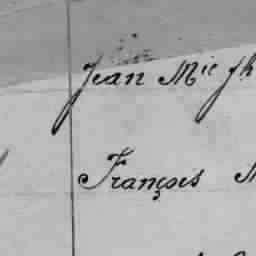 Jean Mie Jh
François